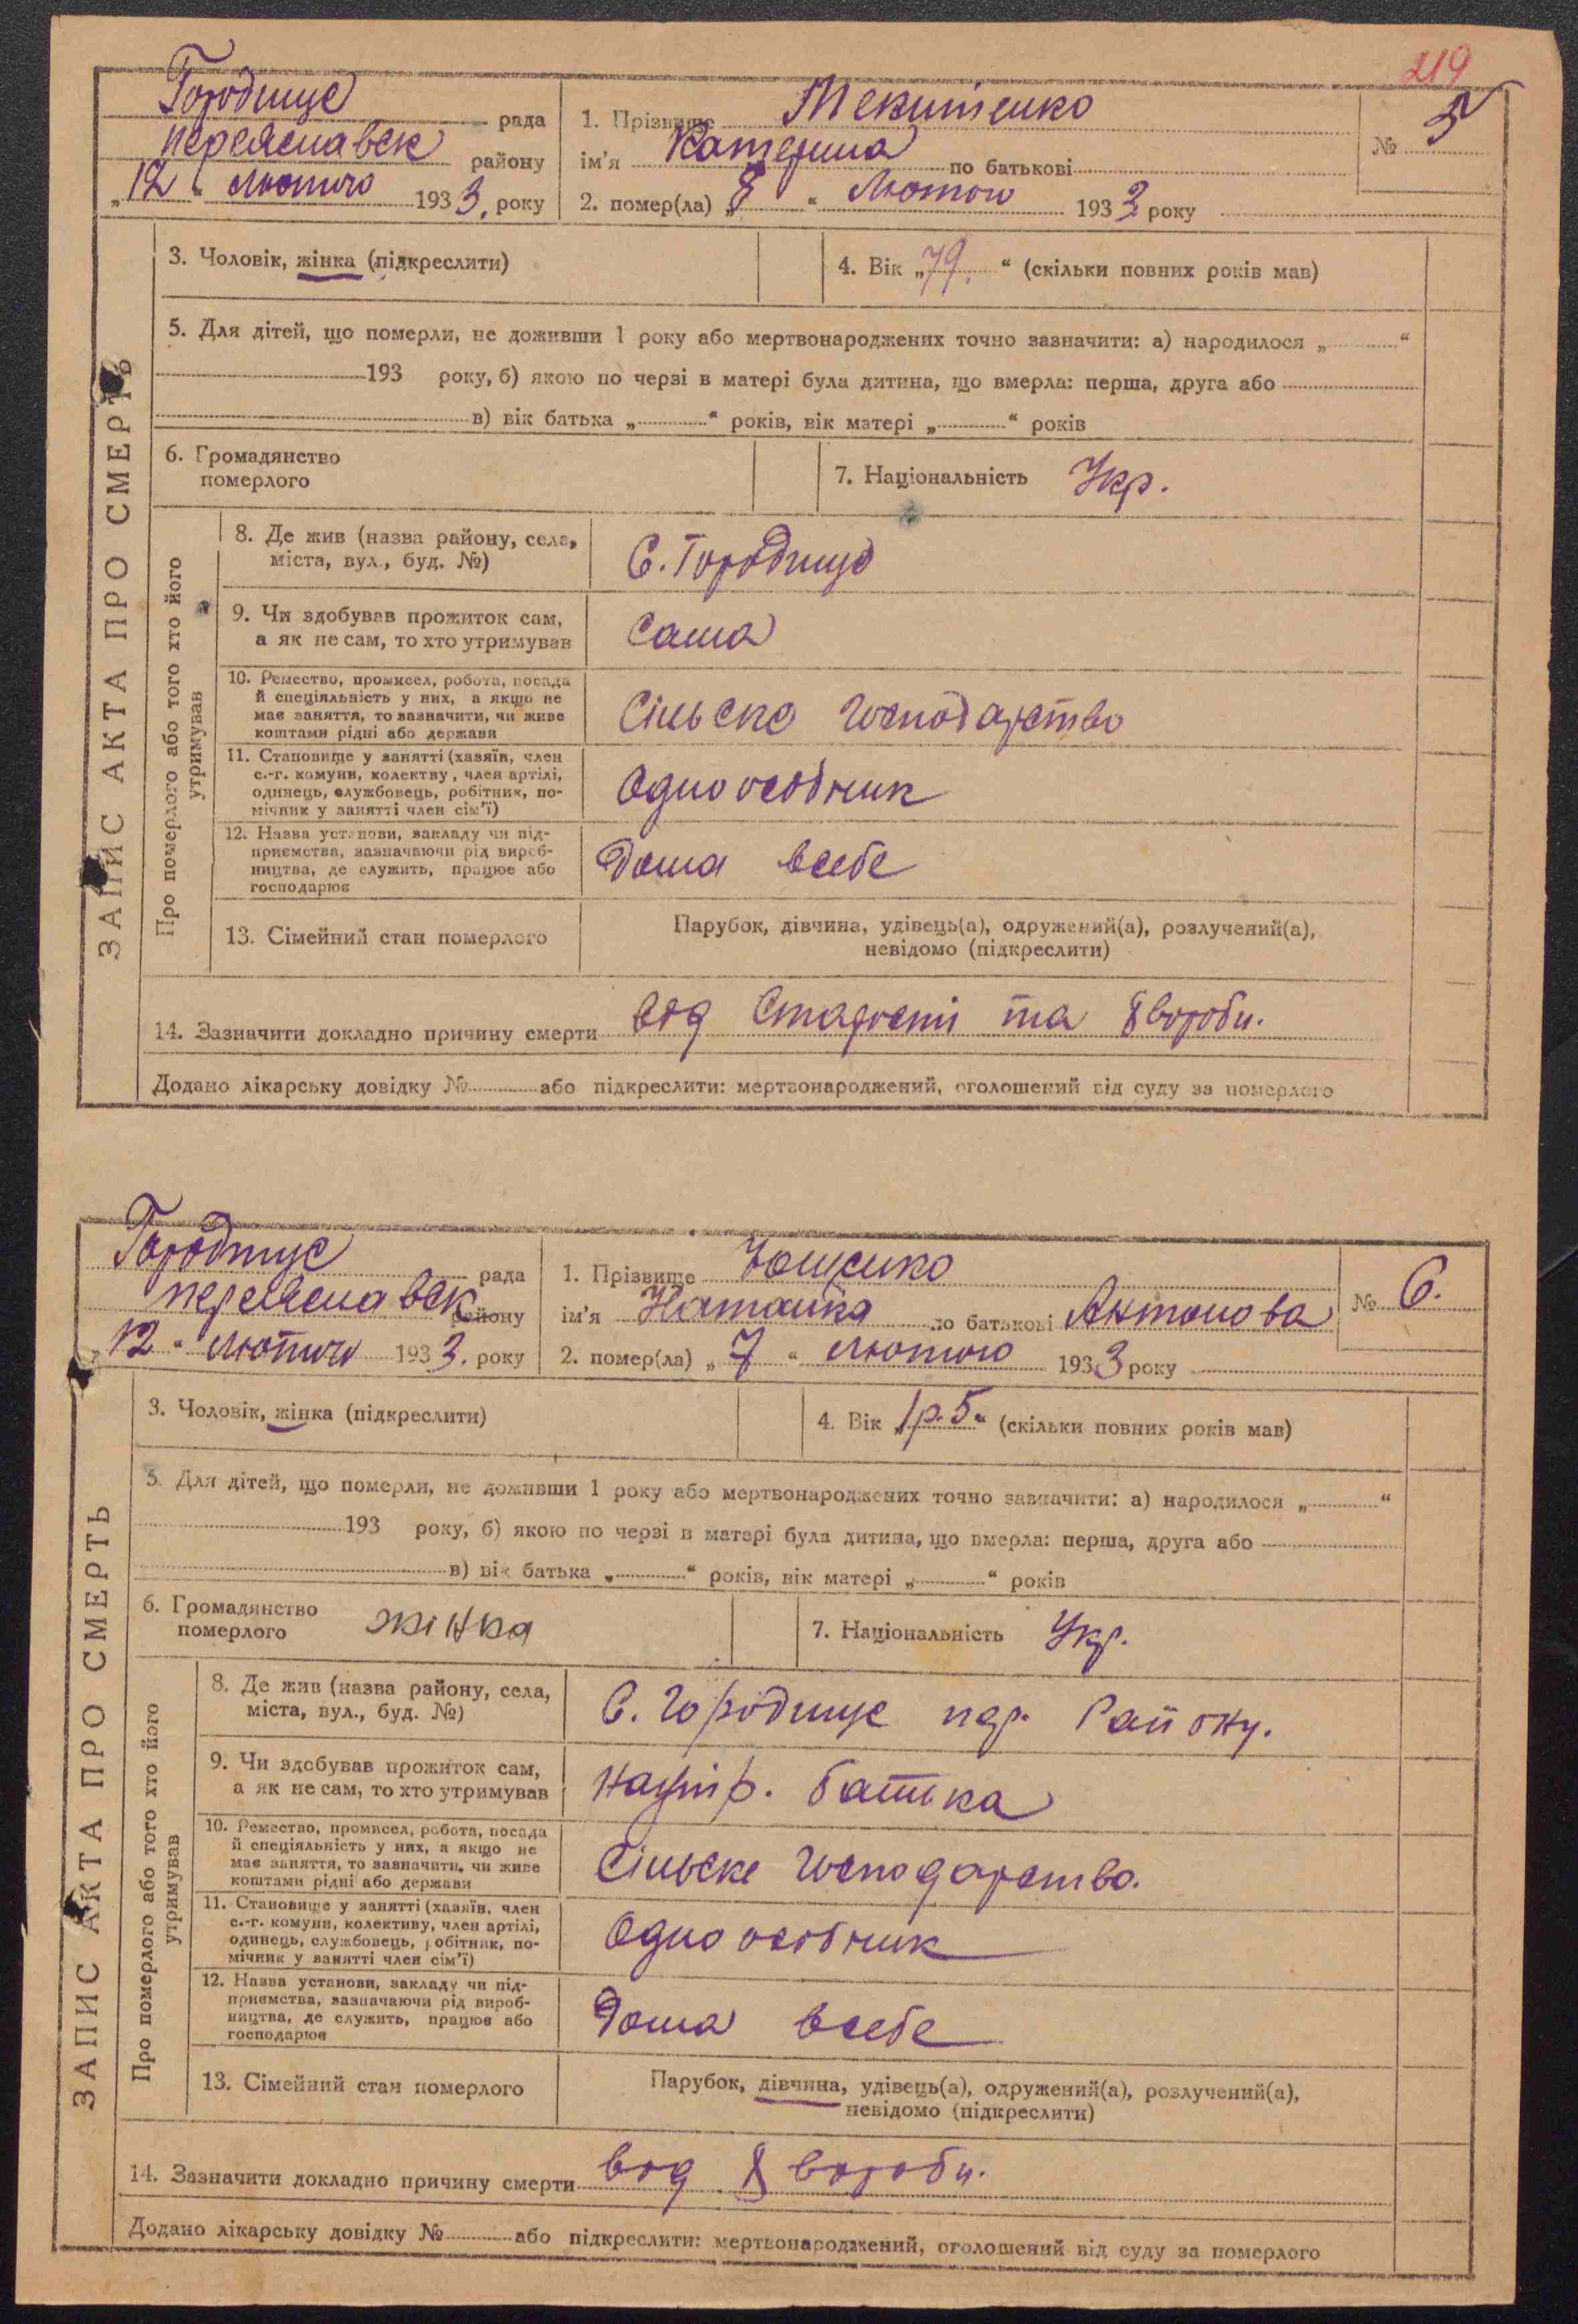 219
Городище рада
переяславск району
„12“ лютого 1933. року
1. Прізвище Текитенко
ім'я Катерина по батькові
2. помер(ла) „8“ Лютого 1933 року
№ 5
ЗАПИС АКТА ПРО СМЕРТЬ
3. Чоловік, жінка (підкреслити)
4. Вік „79.“ (скільки повних років мав)
5. Для дітей, що померли, не доживши 1 року або мертвонароджених точно зазначити: а) народилося „ “
193 року, б) якою по черзі в матері була дитина, що вмерла: перша, друга або
в) вік батька „ “ років, вік матері „ “ років
6. Громадянство
померлого
7. Національність Укр.
Про померлого або того хто його
утримував
8. Де жив (назва району, села,
міста, вул., буд. №)
С. Городище
9. Чи здобував прожиток сам,
а як не сам, то хто утримував
Сама
10. Ремество, промисел, робота, посада
й спеціяльність у них, а якщо не
має заняття, то зазначити, чи живе
коштами рідні або держави
Сільске господарство
11. Становище у занятті (хазяїн, член
с.-г. комуни, колектву, член артілі,
одинець, службовець, робітник, по-
мічник у занятті член сім'ї)
Одноособник
12. Назва установи, закладу чи під-
приємства, зазначаючи рід вироб-
ництва, де служить, працює або
господарює
Дома всебе
13. Сімейний стан померлого
Парубок, дівчина, удівець(а), одружений(а), розлучений(а),
невідомо (підкреслити)
14. Зазначити докладно причину смерти вод Старости та Хвороби.
Додано лікарську довідку № або підкреслити: мертвонароджений, оголошений від суду за померлого
Городище рада
переяславск району
„12“ лютого 1933. року
1. Прізвище Ющенко
ім'я Наталка по батькові Антонова
2. помер(ла) „7“ лютого 1933 року
№ 6.
ЗАПИС АКТА ПРО СМЕРТЬ
3. Чоловік, жінка (підкреслити)
4. Вік „1р. 5“ (скільки повних років мав)
5. Для дітей, що померли, не доживши 1 року або мертвонароджених точно зазначити: а) народилося „ “
193 року, б) якою по черзі в матері була дитина, що вмерла: перша, друга або
в) вік батька „ “ років, вік матері „ “ років
6. Громадянство
померлого
жінка
7. Національність Укр.
Про померлого або того хто його
утримував
8. Де жив (назва району, села,
міста, вул., буд. №)
С. Городище пер. Району.
9. Чи здобував прожиток сам,
а як не сам, то хто утримував
батька
10. Ремество, промисел, робота, посада
й спеціяльність у них, а якщо не
має заняття, то зазначити, чи живе
коштами рідні або держави
Сільске господарство.
11. Становище у занятті (хазяїн, член
с.-г. комуни, колективу, член артілі,
одинець, службовець, робітник, по-
мічник у занятті член сім'ї)
Одноосібник
12. Назва установи, закладу чи під-
приємства, зазначаючи рід вироб-
ництва, де служить, працює або
господарює
Дома всебе
13. Сімейний стан померлого
Парубок, дівчина, удівець(а), одружений(а), розлучений(а),
невідомо (підкреслити)
14. Зазначити докладно причину смерти вод Хвороби.
Додано лікарську довідку № або підкреслити: мертвонароджений, оголошений від суду за померлого